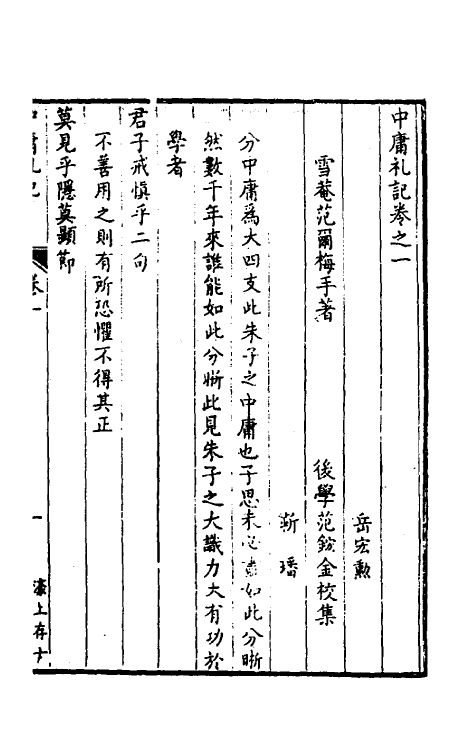 中庸札記卷之一
岳宏勲
雪菴范爾梅手著 後學范鋐金校集
靳璠
分中庸爲大四支此朱子之中庸也子思未必盡如此分晰
然數千年來誰能如此分晰此見朱子之大識力大有功於
學者
君子戒慎乎二句
不善用之則有所恐懼不得其正
莫見乎隱莫顯節
中庸札記 卷一 一 濠上存古